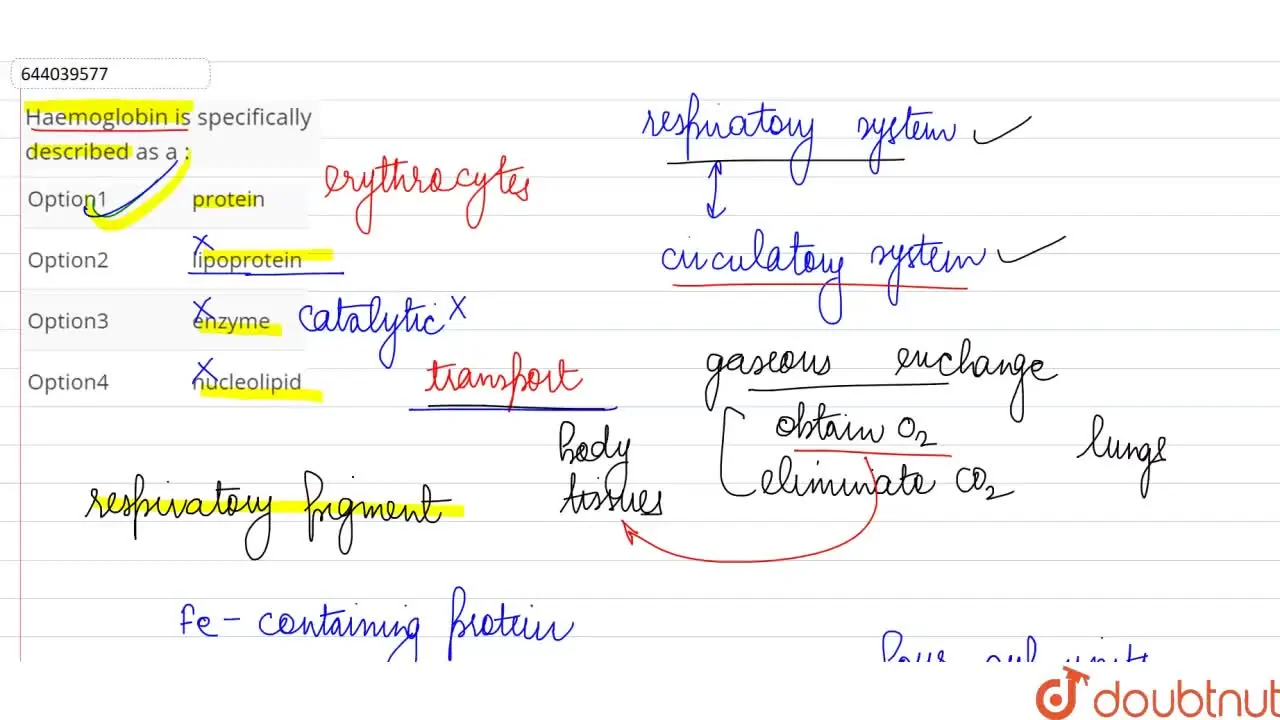 644039577
Haemoglobin is specifically
described as a :
Option1 protein
Option2 lipoprotein
Option3 enzyme
Option4 nucleolipid
erythrocytes
catalytic x
transport
respiratory system
circulatory system
gaseous exchange
obtain O2
eliminate CO2
lungs
body
tissues
respiratory pigment
Fe - containing protein
four sub units
doubtnut